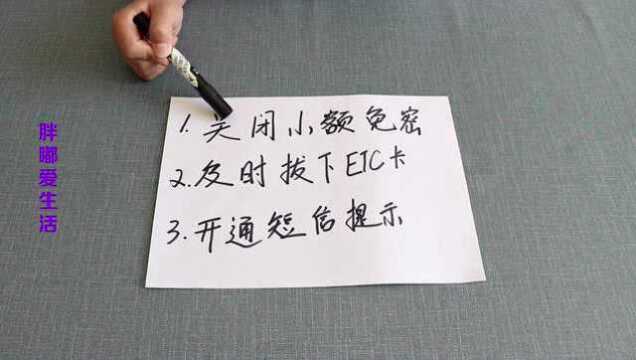 胖嘟爱生活
1. 关闭小额免密
2. 及时拔下ETC卡
3. 开通短信提示